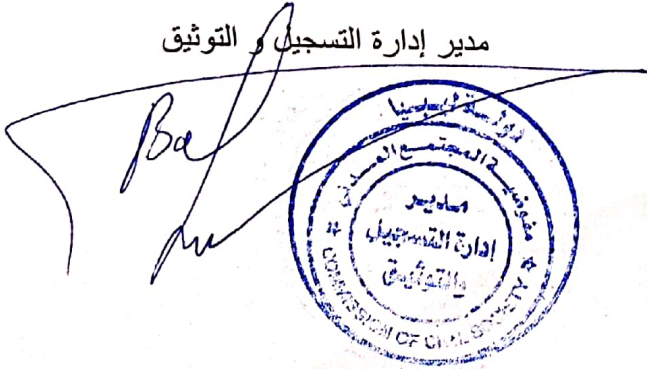 مدير إدارة التسجيل و التوثيق
دولة ليبيا
مفوضية المجتمع المدني
مدير
إدارة التسجيل
والتوثيق
COMMISSION OF CIVIL SOCIETY